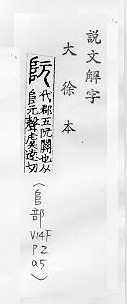 說文解字
大徐本
阮 代郡五阮關也从
𨸏元聲虞遠切
（𨸏部
V14F
P2
a5）